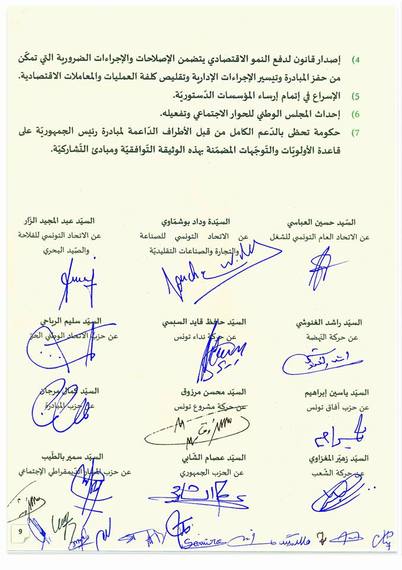 4) إصدار قانون لدفع النمو الاقتصادي يتضمن الإصلاحات والإجراءات الضرورية التي تمكّن
من حفز المبادرة وتيسير الإجراءات الإدارية وتقليص كلفة العمليات والمعاملات الاقتصادية.
5) الإسراع في إتمام إرساء المؤسسات الدّستوريّة.
6) إحداث المجلس الوطني للحوار الاجتماعي وتفعيله.
7) حكومة تحظى بالدّعم الكامل من قبل الأطراف الدّاعمة لمبادرة رئيس الجمهوريّة على
قاعدة الأولويّات والتّوجّهات المضمّنة بهذه الوثيقة التّوافقيّة ومبادئ التّشاركيّة.
السّيد حسين العباسي
عن الاتحاد العام التونسي للشغل
السيّدة وداد بوشمّاوي
عن الاتحاد التونسي للصناعة
والتجارة والصناعات التقليديّة
السيّد عبد المجيد الزّار
عن الاتحاد التونسي للفلاحة
والصّيد البحري
السيّد راشد الغنوشي
عن حركة النهضة
السيّد حافظ قايد السبسي
عن حركة نداء تونس
السيّد سليم الرياحي
عن حزب الاتحاد الوطني الحرّ
السيّد ياسين إبراهيم
عن حزب آفاق تونس
السيّد محسن مرزوق
عن حركة مشروع تونس
السيّد كمال مرجان
عن حزب المبادرة
السيّد زهيّر المغزاوي
عن حركة الشّعب
السيّد عصام الشّابي
عن الحزب الجمهوري
السيّد سمير بالطّيب
عن حزب المسار الدّيمقراطي الاجتماعي
9